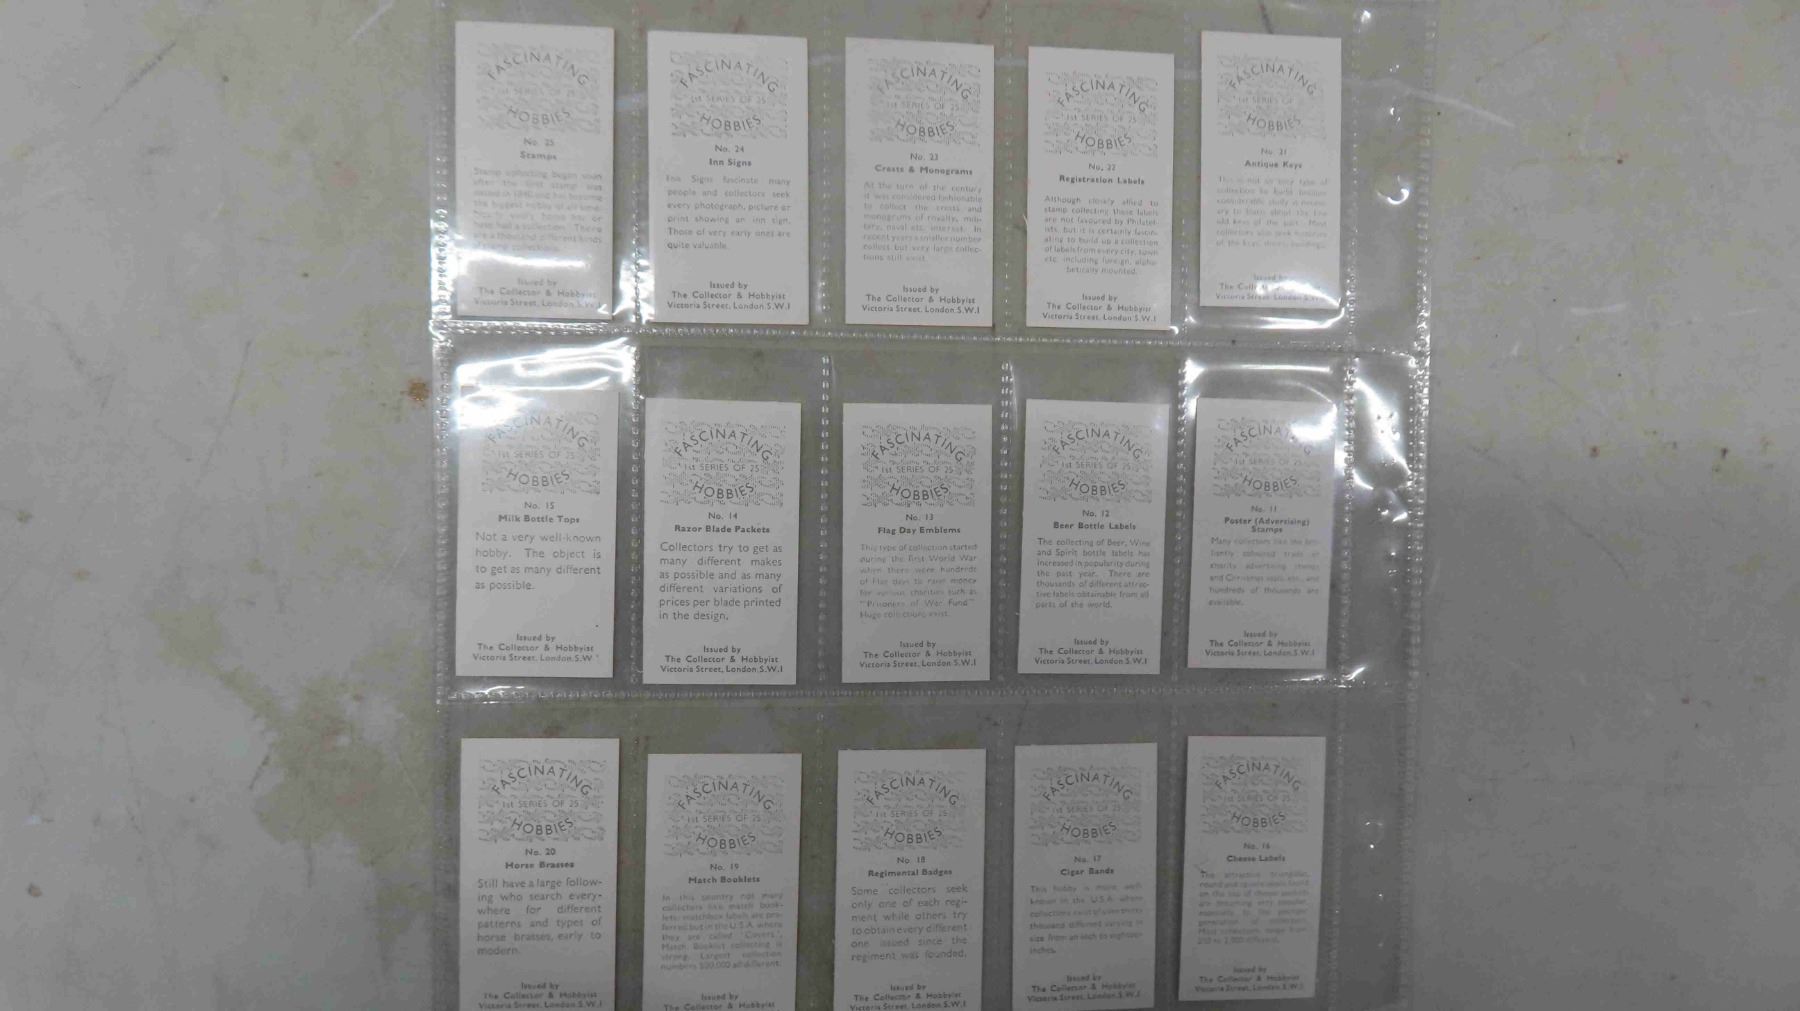 FASCINATING
1st SERIES OF 25
HOBBIES
No. 25
Stamps
Stamp collecting began soon
after the first stamp was
issued in 1840 and has become
the biggest hobby of all time.
Nearly every home has or
have had a collection. There
are a thousand different kinds
of stamp collections.
Issued by
The Collector & Hobbyist
Victoria Street, London S.W.1
FASCINATING
1st SERIES OF 25
HOBBIES
No. 24
Inn Signs
Inn Signs fascinate many
people and collectors seek
every photograph, picture or
print showing an inn sign.
Those of very early ones are
quite valuable.
Issued by
The Collector & Hobbyist
Victoria Street, London S.W.1
FASCINATING
1st SERIES OF 25
HOBBIES
No. 23
Crests & Monograms
At the turn of the century
it was considered fashionable
to collect the crests and
monograms of royalty, mili-
tary, naval etc. interest. In
recent years a smaller number
collect, but very large collec-
tions still exist.
Issued by
The Collector & Hobbyist
Victoria Street, London S.W.1
FASCINATING
1st SERIES OF 25
HOBBIES
No. 22
Registration Labels
Although closely allied to
stamp collecting these labels
are not favoured by Philatel-
ists, but it is certainly fascin-
ating to build up a collection
of labels from every city, town
etc. including foreign, alpha-
betically mounted.
Issued by
The Collector & Hobbyist
Victoria Street, London S.W.1
FASCINATING
1st SERIES OF
HOBBIES
No. 21
Antique Keys
This is not an easy type of
collection to build besides
considerable study is necess-
ary to learn about the fine
old keys of the past. Most
collectors also seek histories
of the keys, doors, buildings.
Issued by
The
Victoria Street, London
FASCINATING
1st SERIES OF 25
HOBBIES
No. 15
Milk Bottle Tops
Not a very well-known
hobby. The object is
to get as many different
as possible.
Issued by
The Collector & Hobbyist
Victoria Street, London S.W
FASCINATING
1st SERIES OF 25
HOBBIES
No. 14
Razor Blade Packets
Collectors try to get as
many different makes
as possible and as many
different variations of
prices per blade printed
in the design.
Issued by
The Collector & Hobbyist
Victoria Street, London S.W.1
FASCINATING
1st SERIES OF 25
HOBBIES
No. 13
Flag Day Emblems
This type of collection started
during the First World War
when there were hundreds
of Flag days to raise money
for various charities such as
"Prisoners of War Fund"
Huge collections exist.
Issued by
The Collector & Hobbyist
Victoria Street, London S.W.1
FASCINATING
1st SERIES OF 25
HOBBIES
No. 12
Beer Bottle Labels
The collecting of Beer, Wine
and Spirit bottle labels has
increased in popularity during
the past year. There are
thousands of different attrac-
tive labels obtainable from all
parts of the world.
Issued by
The Collector & Hobbyist
Victoria Street, London S.W.1
FASCINATING
1st SERIES OF 25
HOBBIES
No. 11
Poster (Advertising)
Stamps
Many collectors like the bri-
liantly coloured trade or
charity advertising stamps
and Christmas seals etc., and
hundreds of thousands are
available.
Issued by
The Collector & Hobbyist
Victoria Street, London S.W.1
FASCINATING
1st SERIES OF 25
HOBBIES
No. 20
Horse Brasses
Still have a large follow-
ing who search every-
where for different
patterns and types of
horse brasses, early to
modern.
Issued by
The Collector & Hobbyist
Victoria Street, London S.W.1
FASCINATING
1st SERIES OF 25
HOBBIES
No. 19
Match Booklets
In this country not many
collectors like match book-
lets, matchbox labels are pre-
ferred but in the U.S.A. where
they are called "Covers",
Match Booklet collecting is
strong. Largest collection
numbers 500,000 all different.
Issued by
The Collector & Hobbyist
Victoria Street, London S.W.1
FASCINATING
1st SERIES OF 25
HOBBIES
No. 18
Regimental Badges
Some collectors seek
only one of each regi-
ment while others try
to obtain every different
one issued since the
regiment was founded.
Issued by
The Collector & Hobbyist
Victoria Street, London S.W.1
FASCINATING
1st SERIES OF 25
HOBBIES
No. 17
Cigar Bands
This hobby is more well
known in the U.S.A. where
collections exist of over thirty
thousand different varying in
size from an inch to eighteen
inches.
Issued by
The Collector & Hobbyist
Victoria Street, London S.W.1
FASCINATING
1st SERIES OF 25
HOBBIES
No. 16
Cheese Labels
The attractive triangular,
round and square labels found
on the top of cheese packets
are becoming very popular,
especially to the younger
generation of collectors.
Most collections range from
250 to 2,000 different.
Issued by
The Collector & Hobbyist
Victoria Street, London S.W.1